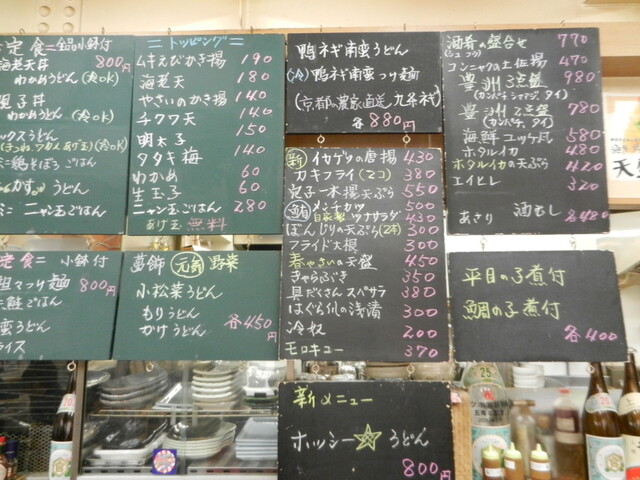 定食ニ 全品小鉢付
海老天丼 800円
わかめうどん (冷OK)
親子丼
わかめうどん (冷OK)
(きつね,ワカメ,あげ玉)(冷OK)
ミニ鶏そぼろごはん
うどん
ミニニャン玉ごはん
=トッピング=
ムキえびかき揚 190
海老天 180
やさいかき揚 140
チクワ天 140
明太子 150
タタキ梅 140
わかめ 60
生玉子 60
ニャン玉ごはん 280
あげ玉 無料
鴨ネギ南蛮うどん
(冷)鴨ネギ南蛮つけ麺
(京都の農家直送 九条ネギ)
各880円
新 イカゲソの唐揚 430
カキフライ(2コ) 380
穴子一本揚天ぷら 550
メンチカツ 500
自家製 ツナサラダ 430
ぼんじりの天ぷら(2本) 300
フライド大根 300
春やさいの天盛 450
きゃらぶき 350
具だくさんスペサラ 380
はぐら瓜の浅漬 300
冷奴 200
モロキュー 370
酒肴の盛合せ 770
コンニャクの土佐揚 470
豊洲3点盛 980
(カンパチ シマアジ, タイ)
豊洲2点盛 780
(カンパチ, タイ)
海鮮ユッケ風 580
ホタルイカ 480
ホタルイカの天ぷら 420
エイヒレ 320
あさり 酒むし 480
定食ニ 小鉢付
800円
鮭ごはん
うどん
ライス
葛飾 元気 野菜
小松菜うどん
もりうどん
かけうどん
各450円
平目の子煮付
鯛の子煮付
各400
新メニュー
ホッシー☆うどん
800円